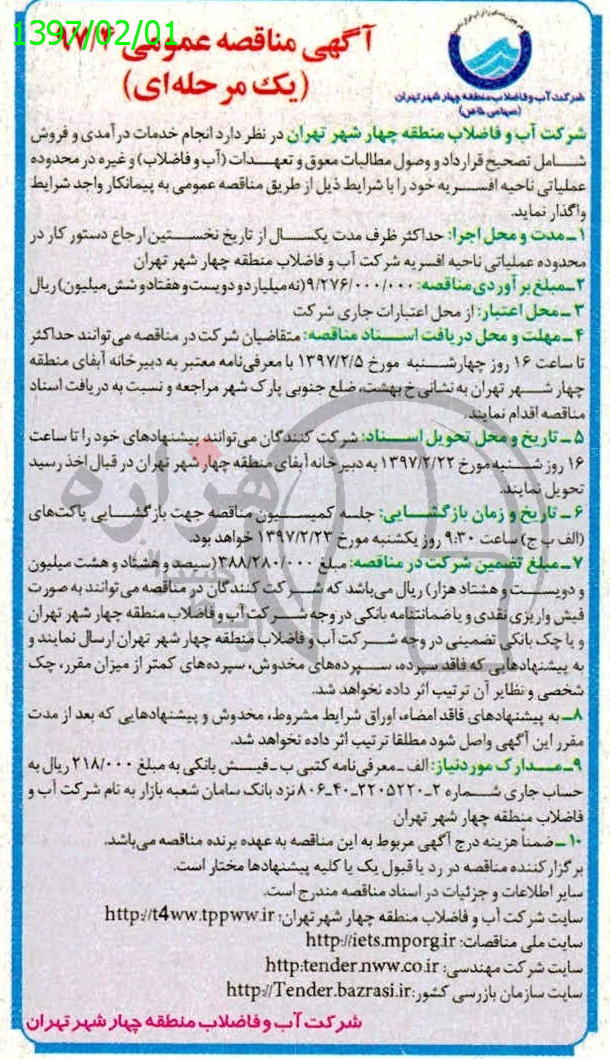 1397/02/01
آگهی مناقصه عمومی ۹۷/۴
(یک مرحله‌ای)
شرکت آب و فاضلاب منطقه چهار شهر تهران
(سهامی خاص)
شرکت آب و فاضلاب منطقه چهار شهر تهران در نظر دارد انجام خدمات درآمدی و فروش
شامل تصحیح قرارداد و وصول مطالبات معوق و تعهدات (آب و فاضلاب) و غیره در محدوده
عملیاتی ناحیه افسریه خود را با شرایط ذیل از طریق مناقصه عمومی به پیمانکار واجد شرایط
واگذار نماید.
۱ـ مدت و محل اجرا: حداکثر ظرف مدت یکسال از تاریخ نخستین ارجاع دستور کار در
محدوده عملیاتی ناحیه افسریه شرکت آب و فاضلاب منطقه چهار شهر تهران
۲ـ مبلغ برآوردی مناقصه: ۹/۲۷۶/۰۰۰/۰۰۰ (نه میلیارد و دویست و هفتاد و شش میلیون) ریال
۳ـ محل اعتبار: از محل اعتبارات جاری شرکت
۴ـ مهلت و محل دریافت اسناد مناقصه: متقاضیان شرکت در مناقصه می‌توانند حداکثر
تا ساعت ۱۶ روز چهارشنبه مورخ ۱۳۹۷/۲/۵ با معرفی‌نامه معتبر به دبیرخانه آبفای منطقه
چهار شهر تهران به نشانی خ بهشت، ضلع جنوبی پارک شهر مراجعه و نسبت به دریافت اسناد
مناقصه اقدام نمایند.
۵ـ تاریخ و محل تحویل اسناد: شرکت کنندگان می‌توانند پیشنهادهای خود را تا ساعت
۱۶ روز شنبه مورخ ۱۳۹۷/۲/۲۲ به دبیرخانه آبفای منطقه چهار شهر تهران در قبال اخذ رسید
تحویل نمایند.
۶ـ تاریخ و زمان بازگشایی: جلسه کمیسیون مناقصه جهت بازگشایی پاکت‌های
(الف ب ج) ساعت ۹:۳۰ روز یکشنبه مورخ ۱۳۹۷/۲/۲۳ خواهد بود.
۷ـ مبلغ تضمین شرکت در مناقصه: مبلغ ۳۸۸/۲۸۰/۰۰۰ (سیصد و هشتاد و هشت میلیون
و دویست و هشتاد هزار) ریال می‌باشد که شرکت کنندگان در مناقصه می‌توانند به صورت
فیش واریزی نقدی و یا ضمانتنامه بانکی در وجه شرکت آب و فاضلاب منطقه چهار شهر تهران
و یا چک بانکی تضمینی در وجه شرکت آب و فاضلاب منطقه چهار شهر تهران ارسال نمایند و
به پیشنهادهایی که فاقد سپرده، سپرده‌های مخدوش، سپرده‌های کمتر از میزان مقرر، چک
شخصی و نظایر آن ترتیب اثر داده نخواهد شد.
۸ـ به پیشنهادهای فاقد امضاء، اوراق شرایط مشروط، مخدوش و پیشنهادهایی که بعد از مدت
مقرر این آگهی واصل شود مطلقا ترتیب اثر داده نخواهد شد.
۹ـ مدارک مورد نیاز: الف ـ معرفی‌نامه کتبی ب ـ فیش بانکی به مبلغ ۲۱۸/۰۰۰ ریال به
حساب جاری شماره ۲ـ۲۲۰۵۲۲۰ـ۴۰ـ۸۰۶ نزد بانک سامان شعبه بازار به نام شرکت آب و
فاضلاب منطقه چهار شهر تهران
۱۰ـ ضمناً هزینه درج آگهی مربوط به این مناقصه به عهده برنده مناقصه می‌باشد.
برگزار کننده مناقصه در رد یا قبول یک یا کلیه پیشنهادها مختار است.
سایر اطلاعات و جزئیات در اسناد مناقصه مندرج است.
سایت شرکت آب و فاضلاب منطقه چهار شهر تهران: http://t4ww.tppww.ir
سایت ملی مناقصات: http://iets.mporg.ir
سایت شرکت مهندسی: http:tender.nww.co.ir
سایت سازمان بازرسی کشور: http://Tender.bazrasi.ir
شرکت آب و فاضلاب منطقه چهار شهر تهران
هزاره